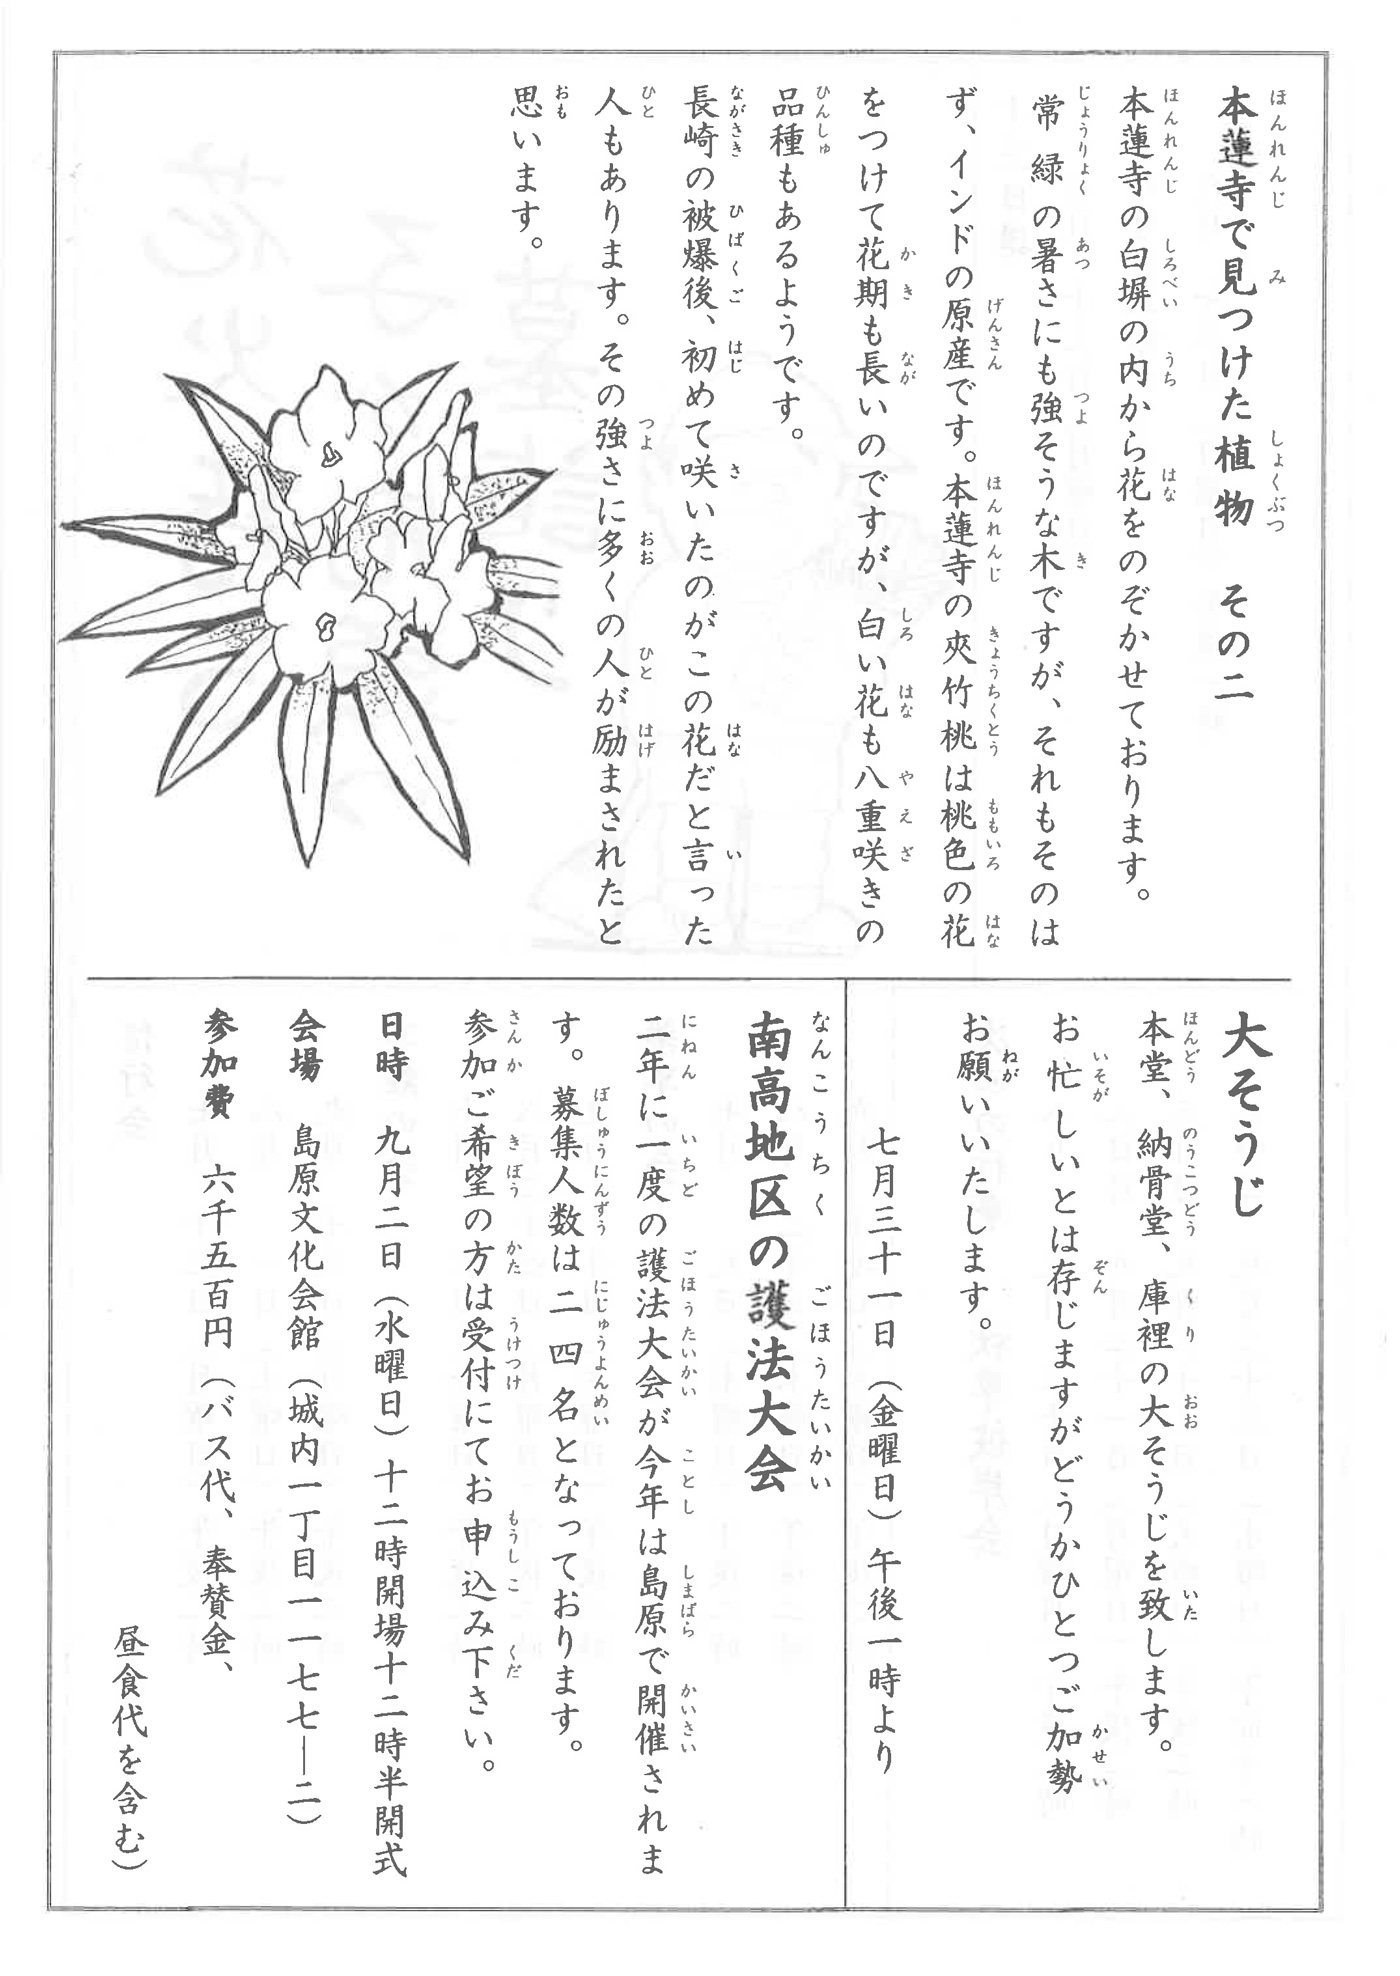 本蓮寺で見つけた植物　その二
本蓮寺の白塀の内から花をのぞかせております。
常緑の暑さにも強そうな木ですが、それもそのは
ず、インドの原産です。本蓮寺の夾竹桃は桃色の花
をつけて花期も長いのですが、白い花も八重咲きの
品種もあるようです。
長崎の被爆後、初めて咲いたのがこの花だと言った
人もあります。その強さに多くの人が励まされたと
思います。
大そうじ
本堂、納骨堂、庫裡の大そうじを致します。
お忙しいとは存じますがどうかひとつご加勢
お願いいたします。
七月三十一日（金曜日）午後一時より
南高地区の護法大会
二年に一度の護法大会が今年は島原で開催されま
す。募集人数は二四名となっております。
参加ご希望の方は受付にてお申込み下さい。
日時　九月二日（水曜日）十二時開場十二時半開式
会場　島原文化会館（城内一丁目一一七七―二）
参加費　六千五百円（バス代、奉賛金、
昼食代を含む）